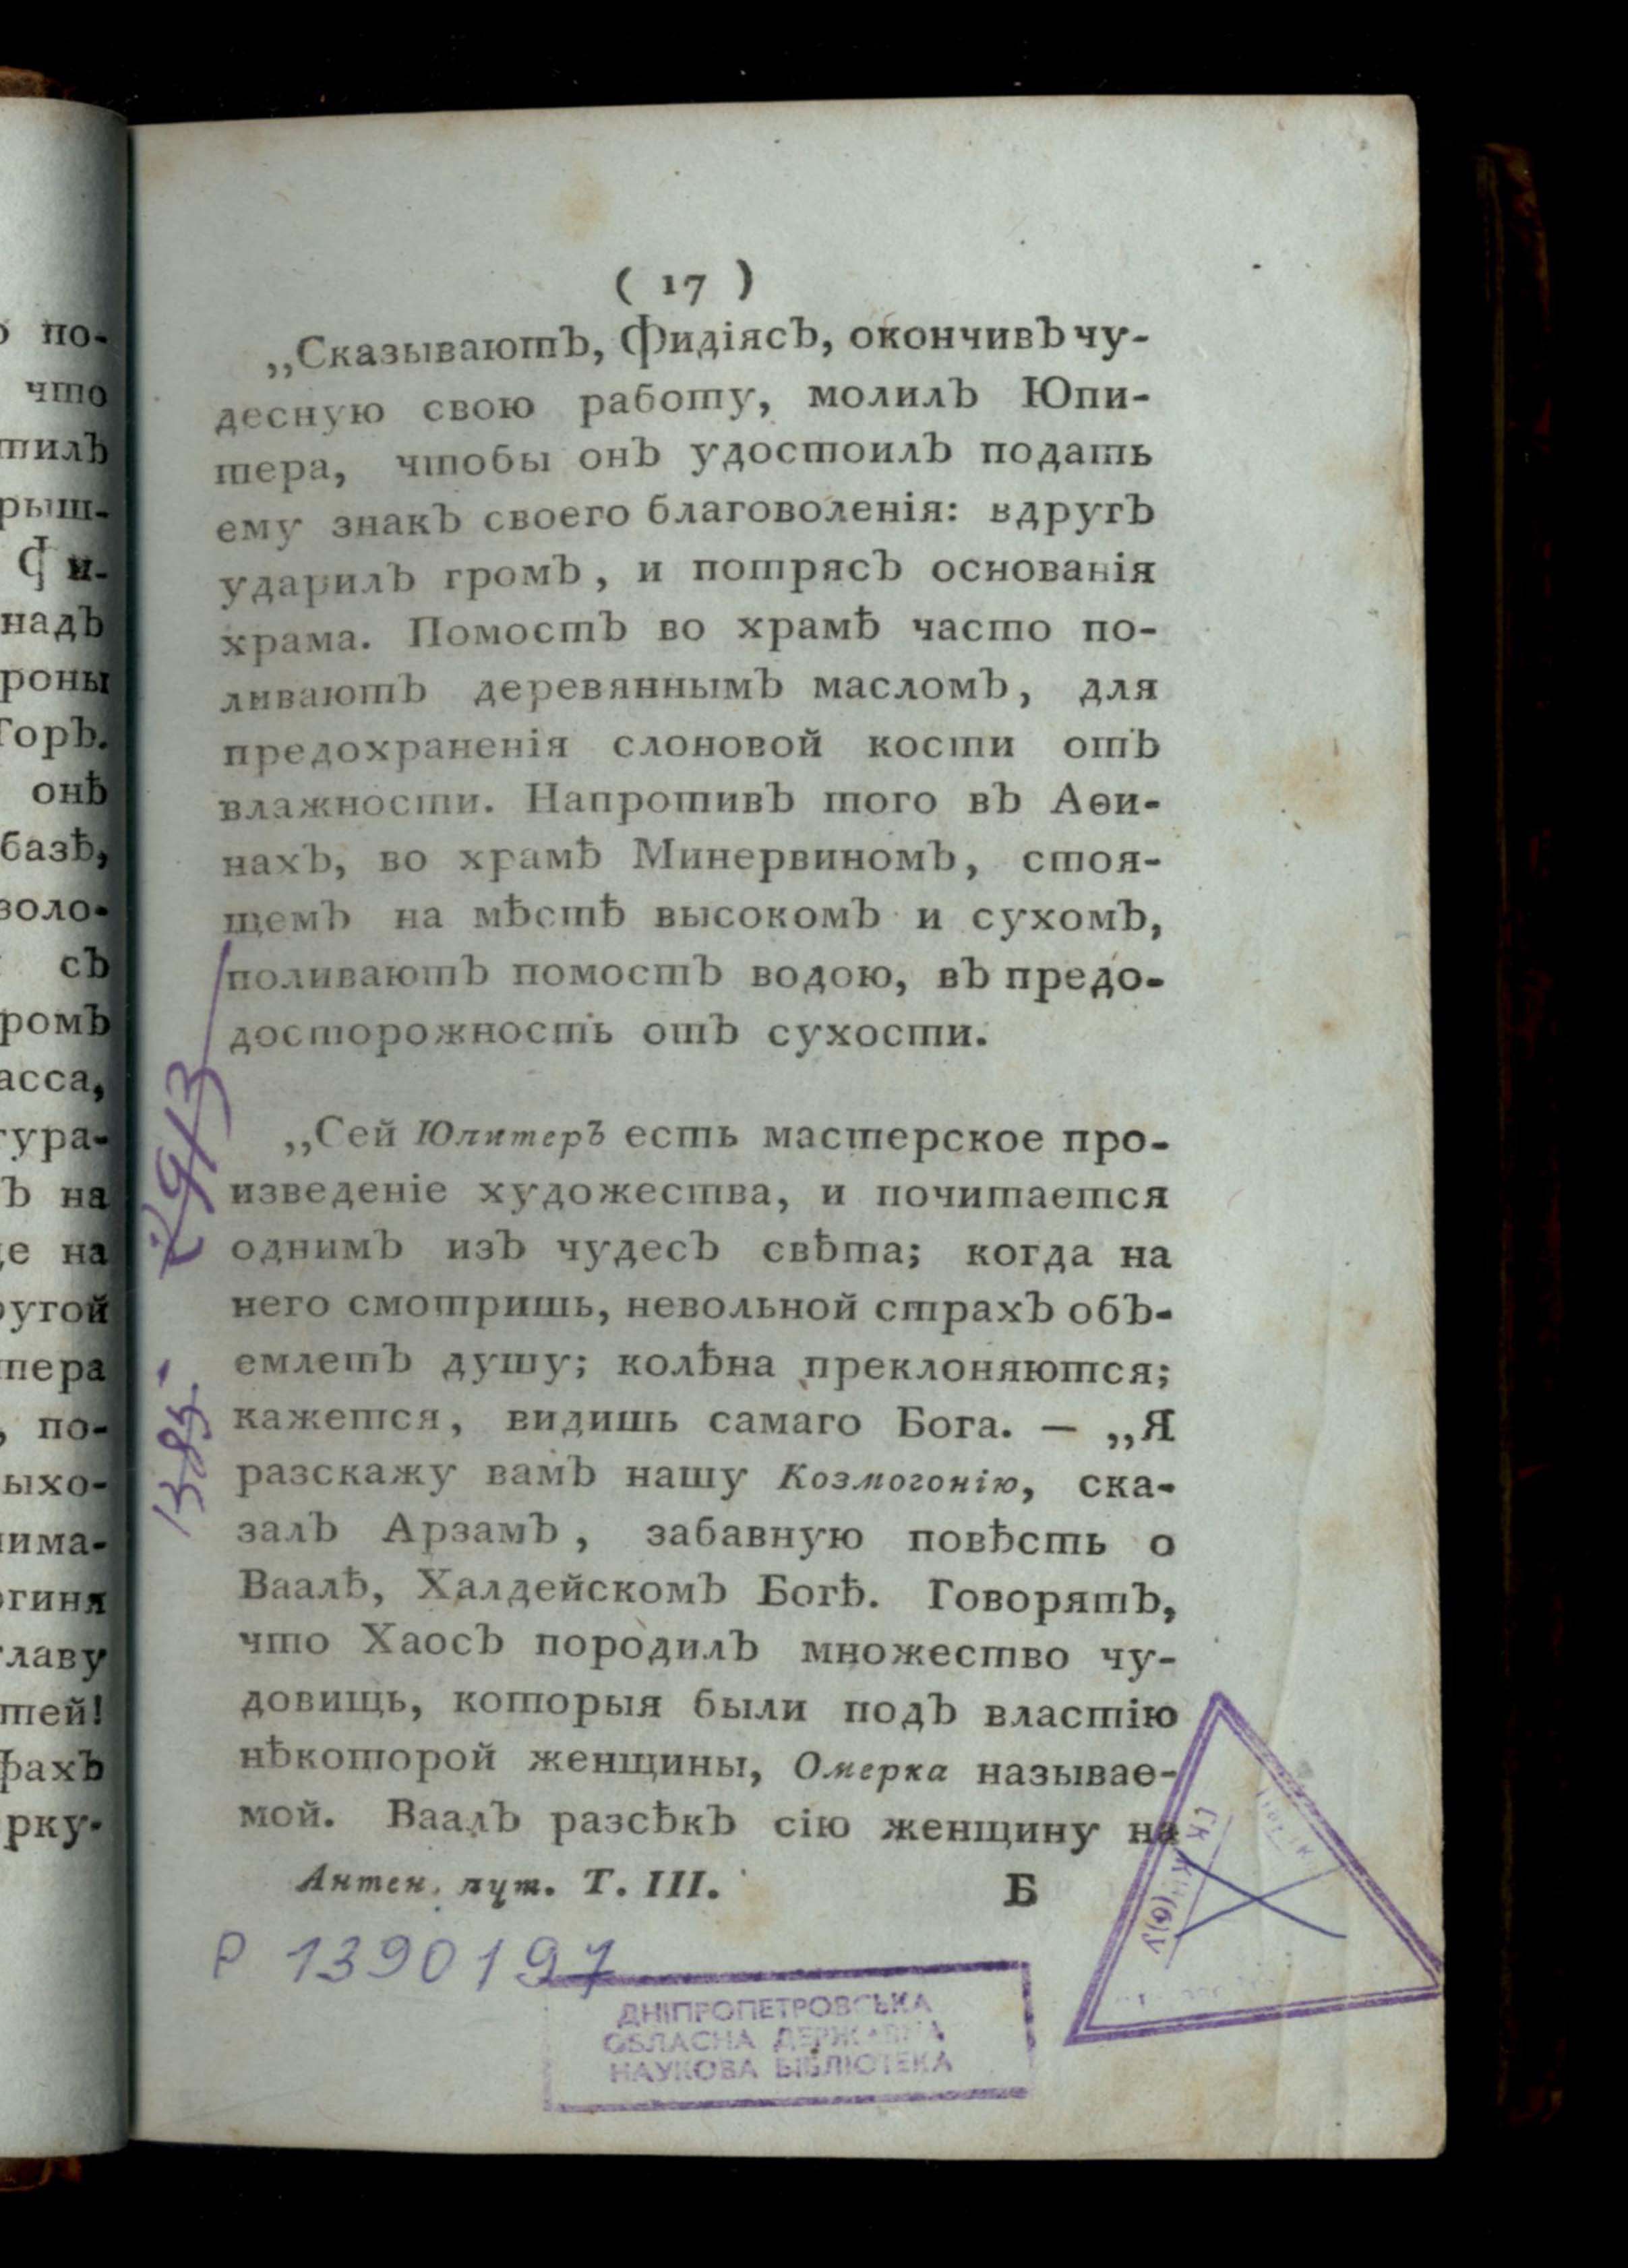 ( 17 )
„Сказываютъ, Фидіясъ, окончивъ чу-
десную свою работу, молилъ Юпи-
тера, чтобы онъ удостоилъ подать
ему знакъ своего благоволенія: вдругъ
ударилъ громъ, и потрясъ основанія
храма. Помостъ во храмѣ часто по-
ливаютъ деревяннымъ масломъ, для
предохраненія слоновой кости отъ
влажности. Напротивъ того въ Аѳи-
нахъ, во храмѣ Минервиномъ, стоя-
щемъ на мѣстѣ высокомъ и сухомъ,
поливаютъ помостъ водою, въ предо-
досторожность отъ сухости.
„Сей Юпитеръ есть мастерское про-
изведеніе художества, и почитается
однимъ изъ чудесъ свѣта; когда на
него смотришь, невольной страхъ объ-
емлетъ душу; колѣна преклоняются;
кажется, видишь самаго Бога. — „Я
разскажу вамъ нашу Козмогонію, ска-
залъ Арзамъ, забавную повѣсть о
Ваалѣ, Халдейскомъ Богѣ. Говорятъ,
что Хаосъ породилъ множество чу-
довищь, которыя были подъ властію
нѣкоторой женщины, Омерка называе-
мой. Ваалъ разсѣкъ сію женщину на
Антен. пут. Т. III. Б
Р 1390197
ДНІПРОПЕТРОВСЬКА
ОБЛАСНА ДЕРЖАВНА
НАУКОВА БІБЛІОТЕКА
по-
что
тилъ
рыш-
Фи-
надъ
роны
Горъ.
онѣ
базѣ,
золо-
съ
ромъ
асса,
гура-
ъ на
на
ругой
тера
по-
ыхо-
нима-
огиня
главу
тей!
фахъ
рку-